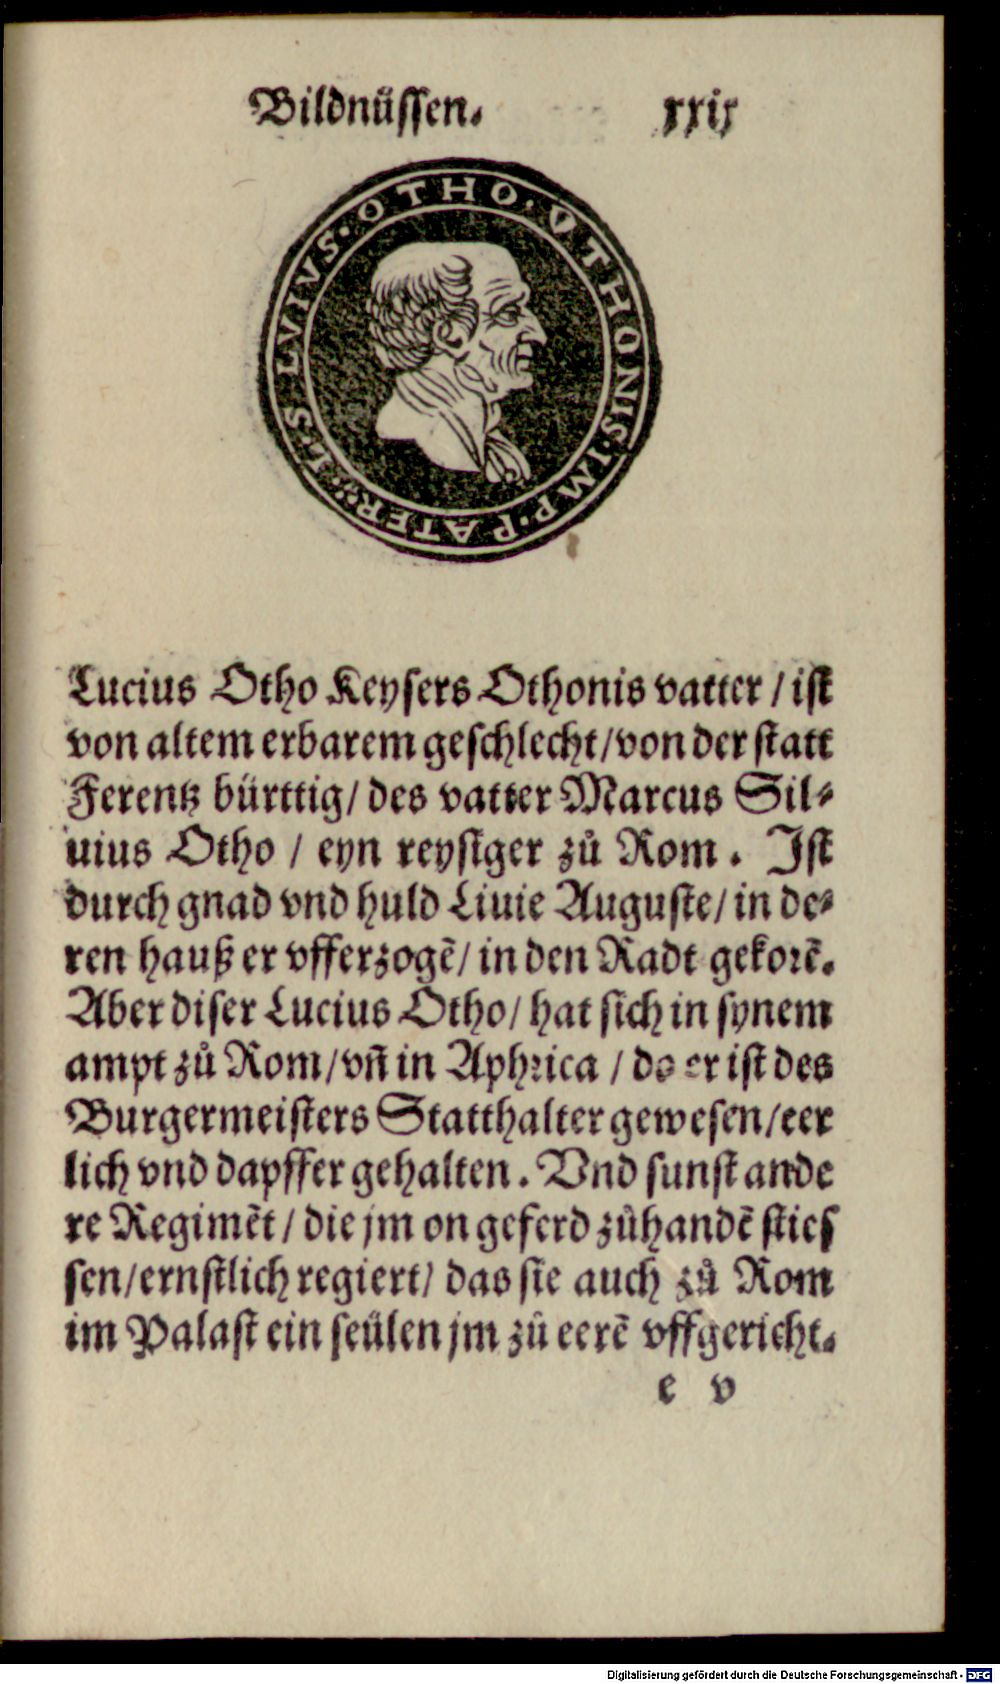 Bildnüssen. xxix
L. SLVIVS. OTHO. OTHONIS. IMP. PATER
Lucius Otho Keysers Othonis vatter / ist
von altem erbarem geschlecht / von der statt
Ferentz bürttig / des vatter Marcus Sil⸗
uius Otho / eyn reysiger zů Rom. Ist
durch gnad vnd huld Liuie Auguste / in de⸗
ren hauß er vfferzogē / in den Radt gekorē.
Aber diser Lucius Otho / hat sich in synem
ampt zů Rom / vñ in Aphrica / do er ist des
Burgermeisters Statthalter gewesen / eer
lich vnd dapffer gehalten. Vnd sunst ande
re Regimēt / die jm on geferd zůhandē sties
sen / ernstlich regiert / das sie auch zů Rom
im Palast ein seülen jm zů eerē vffgericht.
e v
Digitalisierung gefördert durch die Deutsche Forschungsgemeinschaft - DFG